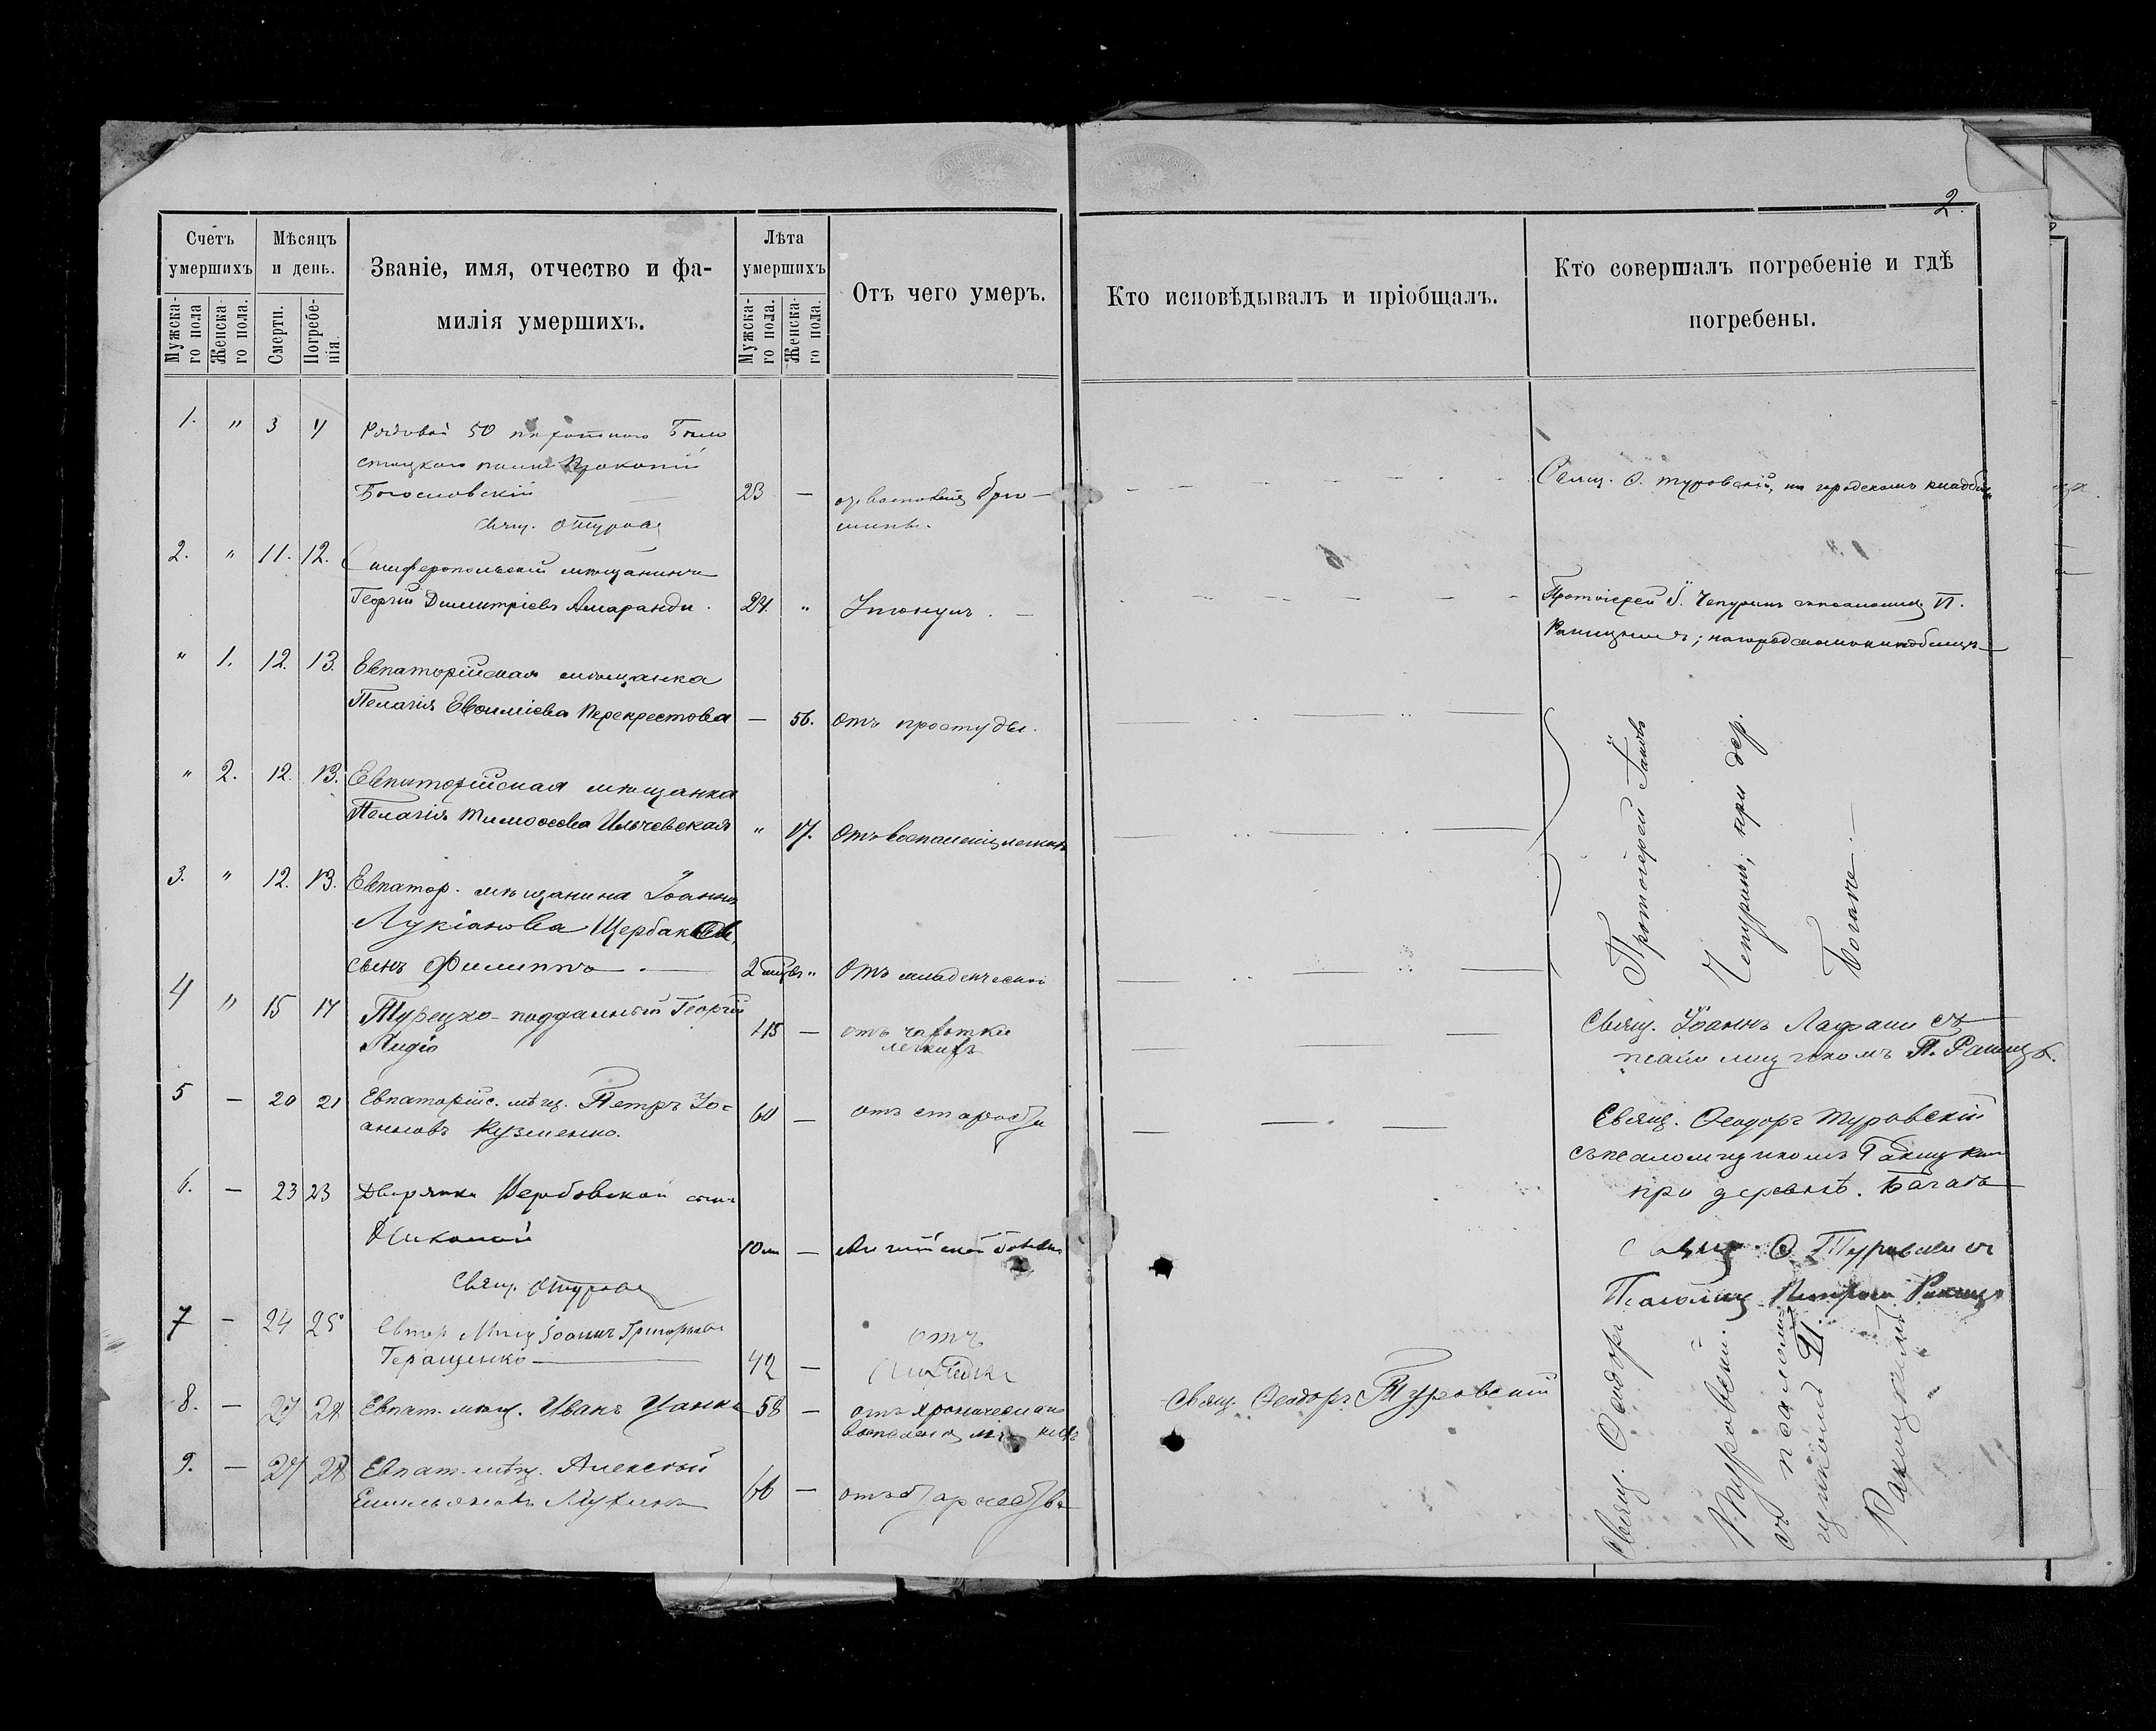 2.
Счетъ умершихъ
Мѣсяцъ и день.
Званіе, имя, отчество и фа-
милія умершихъ.
Лѣта умершихъ
Отъ чего умеръ.
Кто исповѣдывалъ и пріобщалъ.
Кто совершалъ погребеніе и гдѣ
погребены.
Мужска-
го пола
Женска-
го пола.
Смерти.
Погребе-
нія.
Мужска-
го пола.
Женска-
го пола.
1. " 3 4 Рядовой 50 пѣхотнаго Бѣло
стоцкаго полка Прокопій
Богословскій 23 —
Свящ. Ѳ. Туровскій, на городскомъ кладбищѣ
Свящ. Ѳ Туров
2. " 11. 12. Симферопольскій мѣщанинъ
Георгій Димитріевъ Амаранди. 24. " Утонулъ. —
Протоіерей І. Чепуринъ съ псаломщ. П.
Ракицкимъ; на городскомъ кладбищѣ
" 1. 12. 13. Евпаторійская мѣщанка
Пелагія Евѳиміева Перекрестова — 56. Отъ простуды.
" 2. 12. 13. Евпаторійская мѣщанка
Пелагія Тимоѳеева Ильчевская " 17. Отъ воспаленія легкихъ
3. " 12. 13. Евпатор. мѣщанина Іоанна
Лукіанова Щербакова
сынъ Филиппъ — 2 " Отъ младенческой
Протоіерей Іаковъ
Чепуринъ, при дер.
Богаче. —
4 " 15 17 Турецко-подданный Георгій
45 — отъ чахотки
легкихъ
Свящ. Іоаннъ съ
псаломщикомъ П. Ракицк.
5 — 20 21 Евпаторійс. мѣщ. Петръ Іо-
анновъ Кузменко. 60 — отъ старости
Свящ. Ѳеодоръ Туровскій
съ псаломщикомъ Ракицким
при деревнѣ. Багаъ
6. — 23 23 Дворянки Вербовской сынъ
Николай 10 — Англійской болѣзни
Свящ. Ѳ Туровски съ
Псаломщ Петром Ракицк
Свящ. Ѳ Туров
7 — 24 25 Евпатор Мѣщ Іоаннъ Григорьевъ
Геращенко — 42 — отъ
8. — 27 28 Евпат. мѣщ. Иванъ Цанко 58 — отъ хроническаго
воспаленія
Свящ. Ѳеодоръ Туровскій
9. — 27 28 Евпат. мѣщ. Алексѣй
Емельяновъ 66 —
Свящ. Ѳеодоръ
Туровскій.
съ псалом-
щикомъ П.
Ракицкимъ